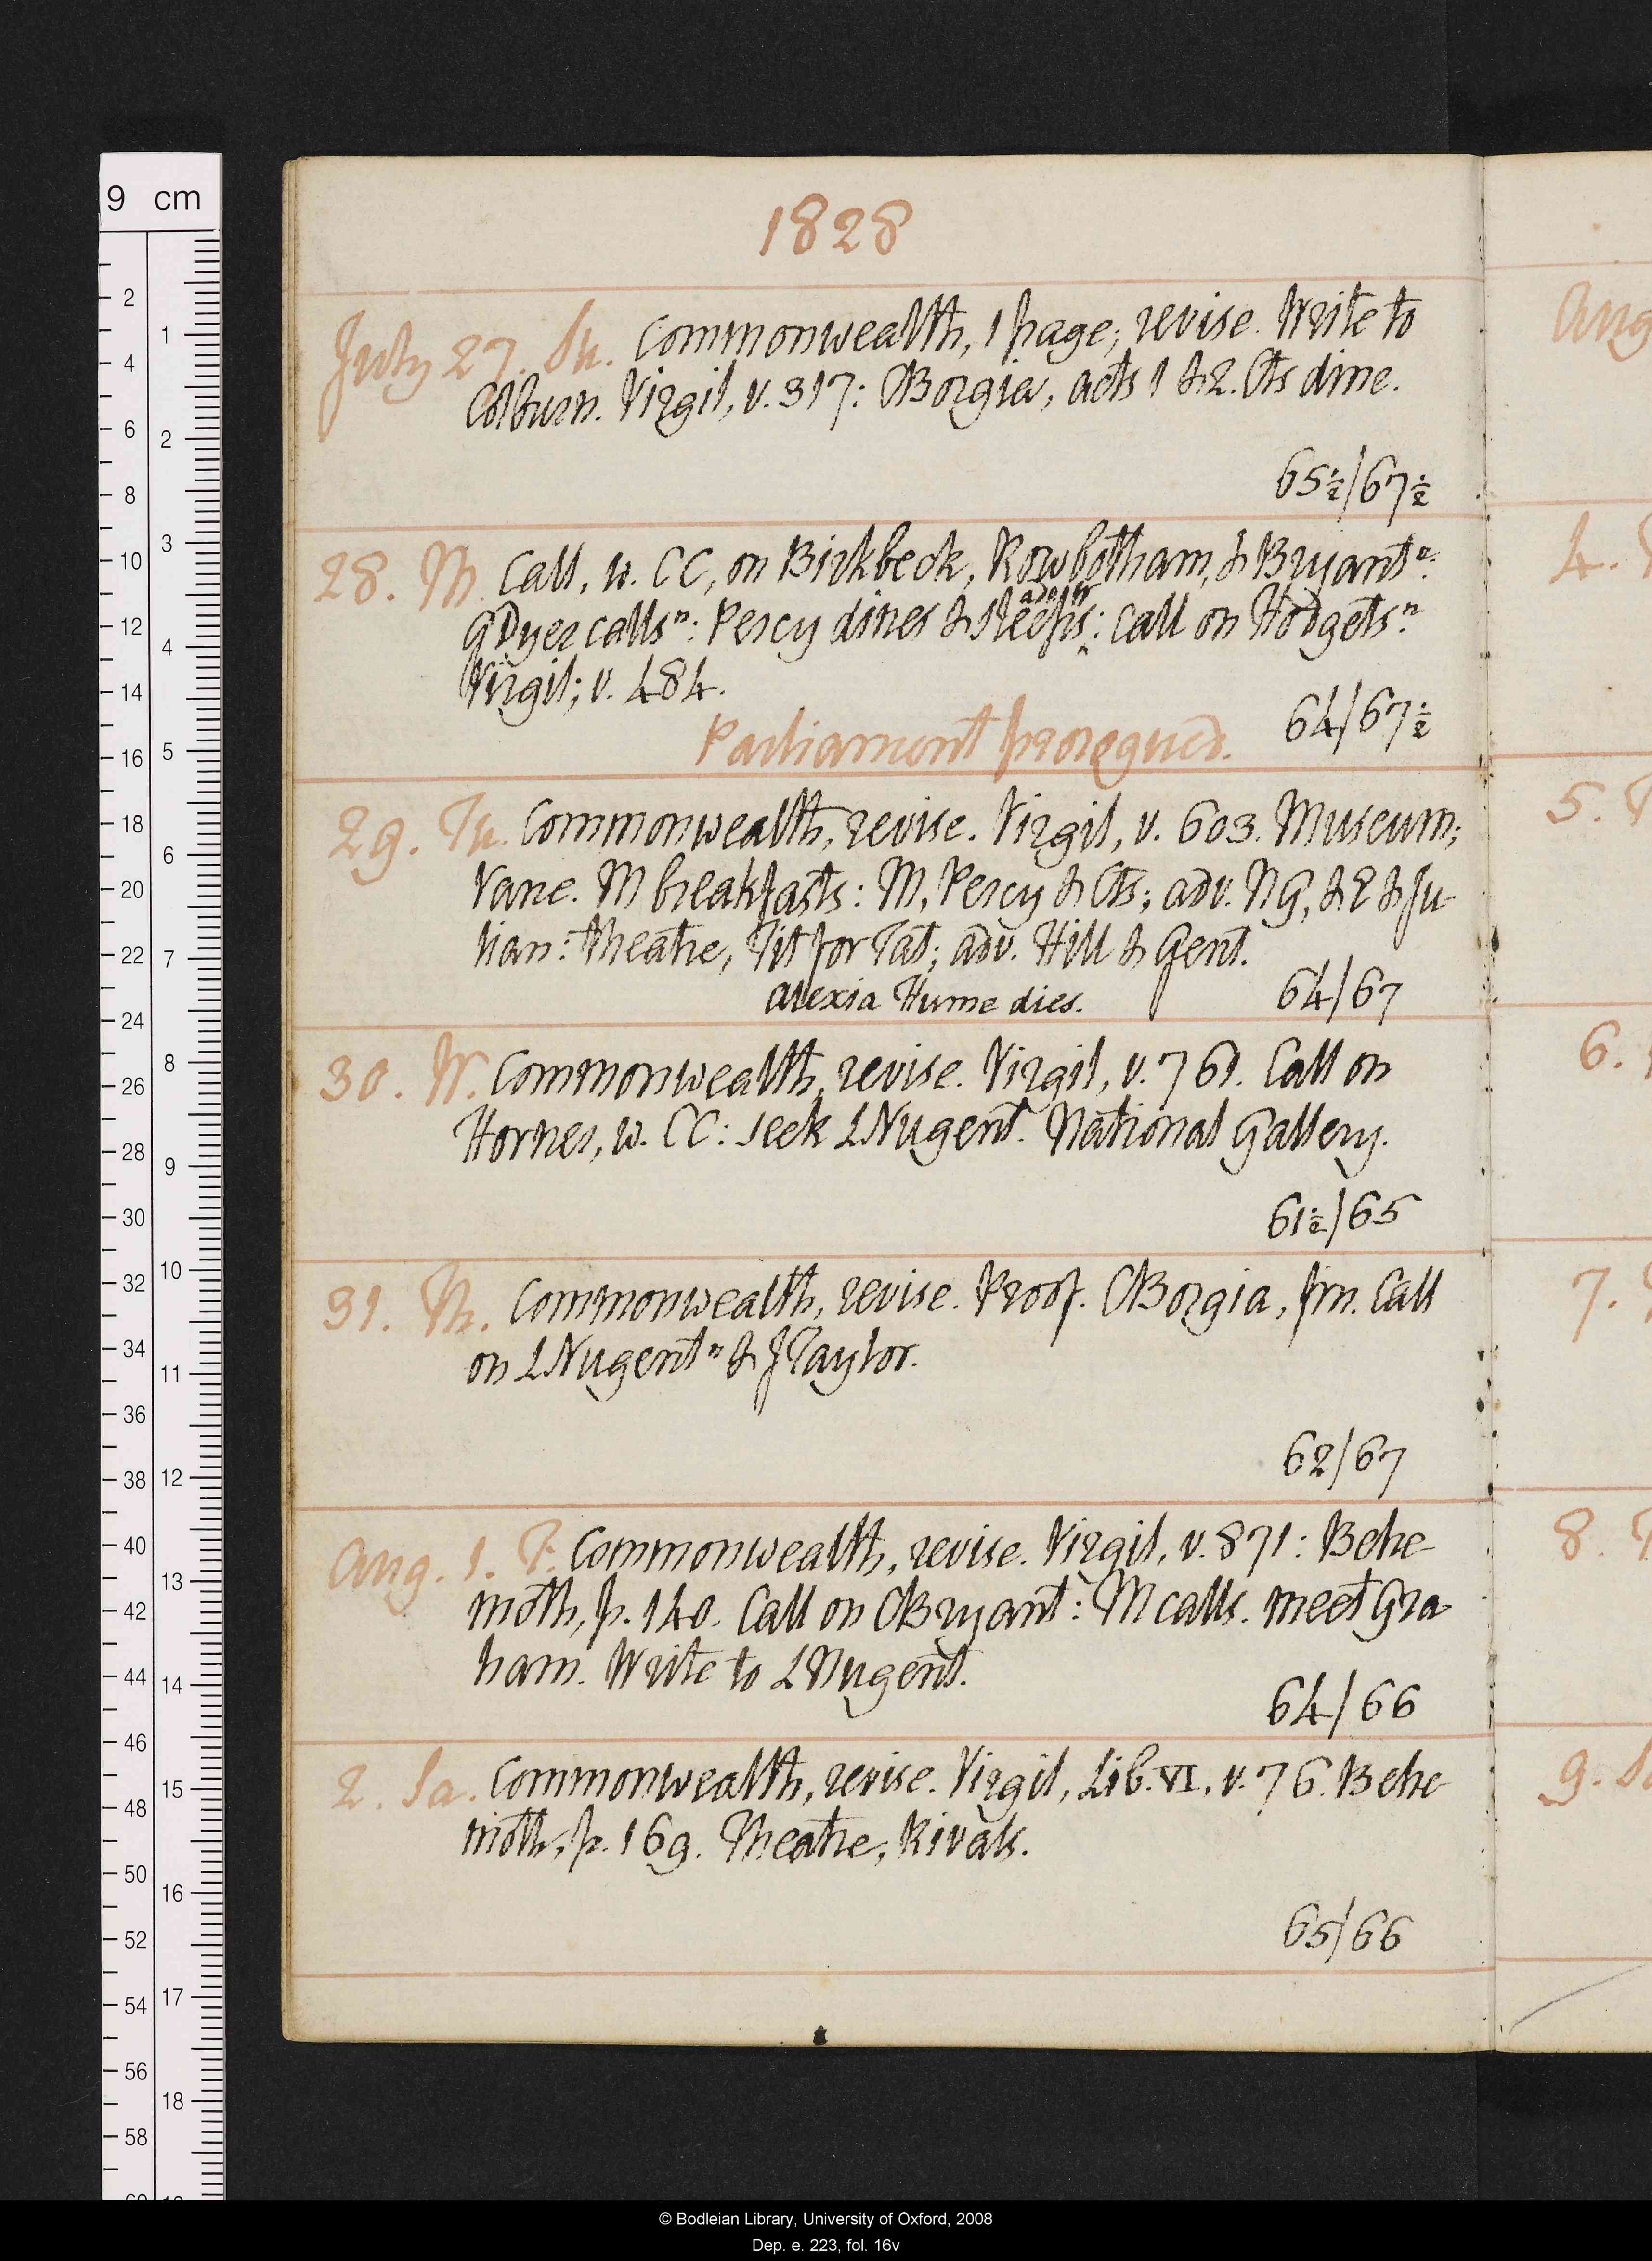 1828
July 27. Su. Commonwealth, 1 page; revise. Write to
Colburn. Virgil, v. 317: CBorgia, acts 1 & 2. Cts dine.
65½/67½
28. M. Call, w. CC, on Birkbeck, Rowbotham, & Bryant n:
GDyer calls n: Percy dines & sleeps: call on Hodgets n.
Virgil; v. 484.
Parliament prorogued. 64/67½
29. Tu. Commonwealth, revise. Virgil, v. 603. Museum;
Vane. M breakfasts: M, Percy & Cts; adv. NG, & E & Ju-
lian: theatre, Tit for Tat; adv. Hill & Gent.
Alexia Hume dies. 64/67
30. W. Commonwealth, revise. Virgil, v. 761. Call on
Hornes, w. CC: seek LNugent. National Gallery.
61½/65
31. Th. Commonwealth, revise. Proof. CBorgia, fin. Call
on LNugent n & JTaylor.
62/67
Aug. 1. F. Commonwealth, revise. Virgil, v. 871: Behe-
moth, p. 140. Call on CBryant: M calls. meet Gra-
ham. Write to LNugent.
64/66
2. Sa. Commonwealth, revise. Virgil, Lib. VI, v. 76. Behe-
moth, p. 169. Theatre, Rivals.
65/66
Aug
4.
5. T
6.
7.
8.
9. Sa
9 cm
2 4 6 8 10 12 14 16 18 20 22 24 26 28 30 32 34 36 38 40 42 44 46 48 50 52 54 56 58
1 2 3 4 5 6 7 8 9 10 11 12 13 14 15 16 17 18
© Bodleian Library, University of Oxford, 2008
Dep. e. 223, fol. 16v